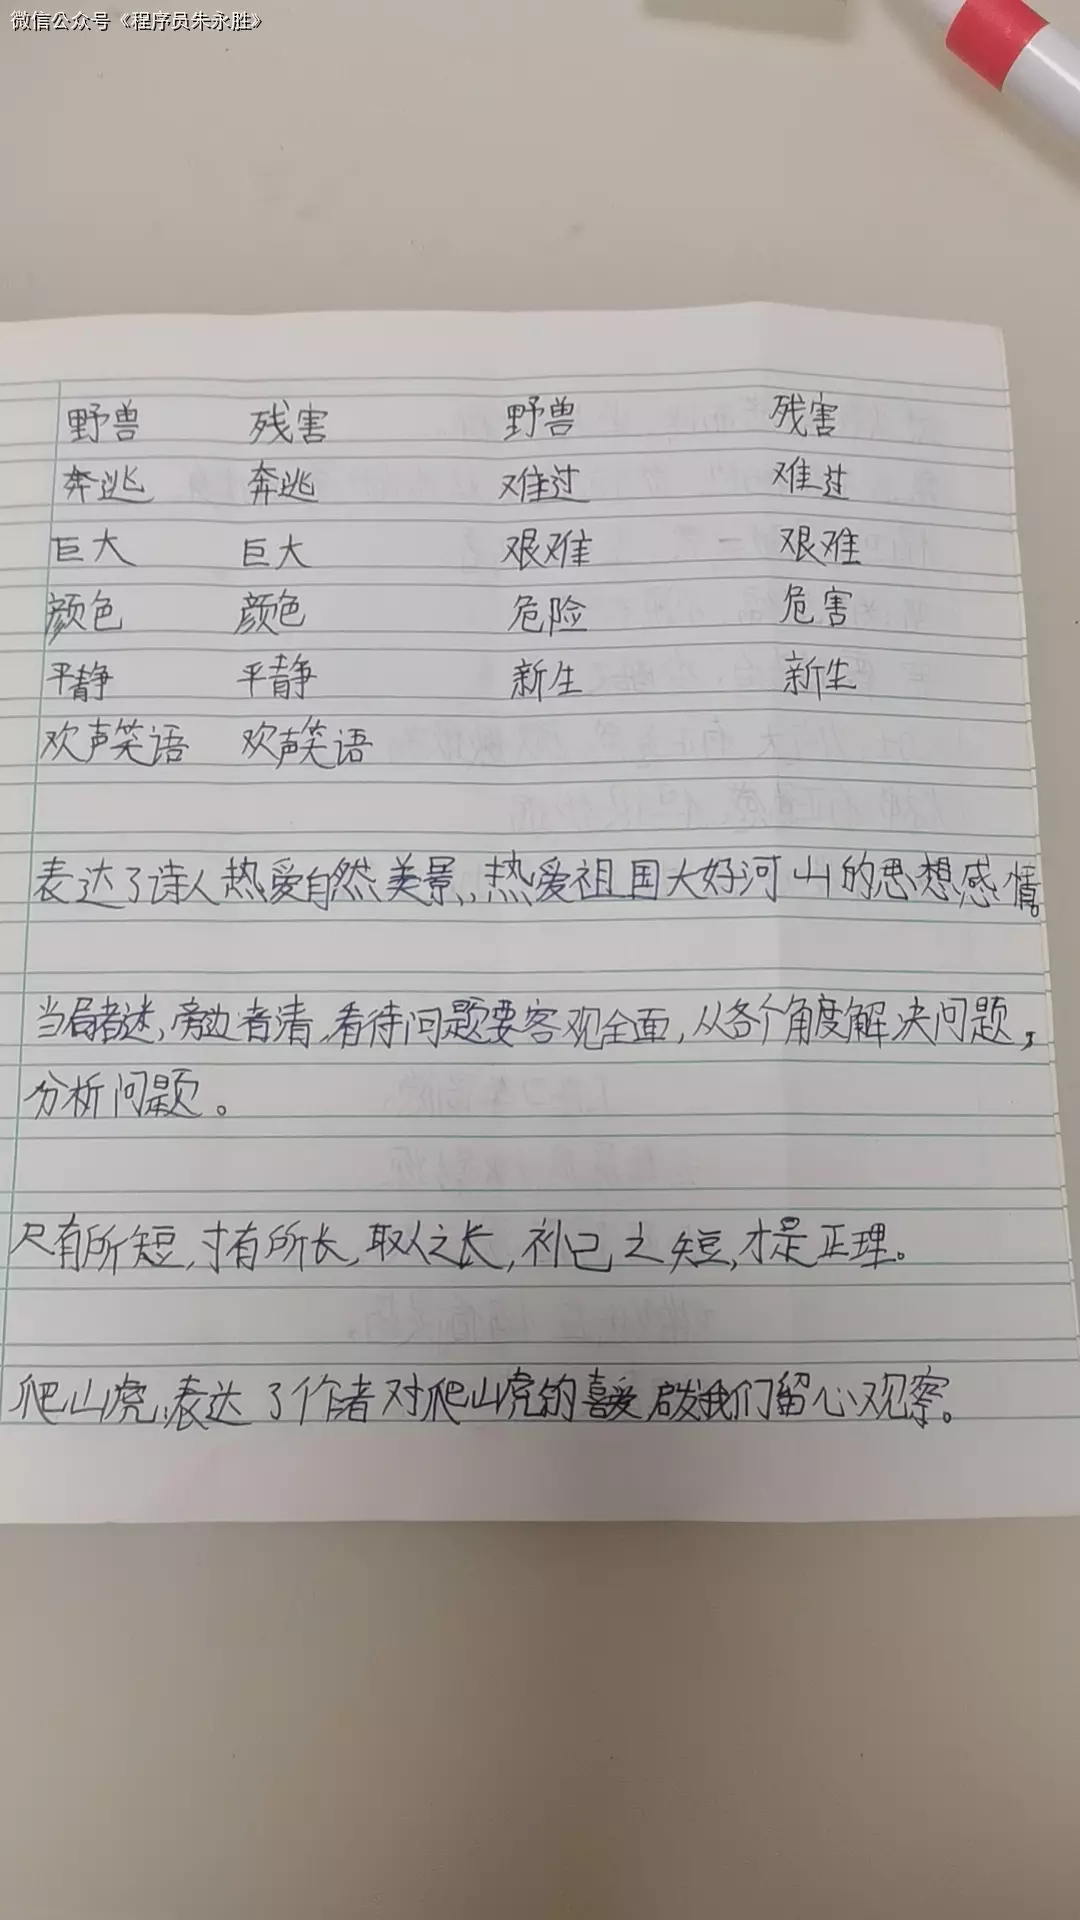 微信公众号《程序员朱永胜》
野兽 残害 野兽 残害
奔逃 奔逃 难过 难过
巨大 巨大 艰难 艰难
颜色 颜色 危险 危害
平静 平静 新生 新生
欢声笑语 欢声笑语
表达了诗人热爱自然美景,热爱祖国大好河山的思想感情。
当局者迷,旁边者清,看待问题要客观全面,从各个角度解决问题,
分析问题。
尺有所短,寸有所长,取人之长,补己之短,才是正理。
爬山虎,表达了作者对爬山虎的喜爱 启发我们留心观察。